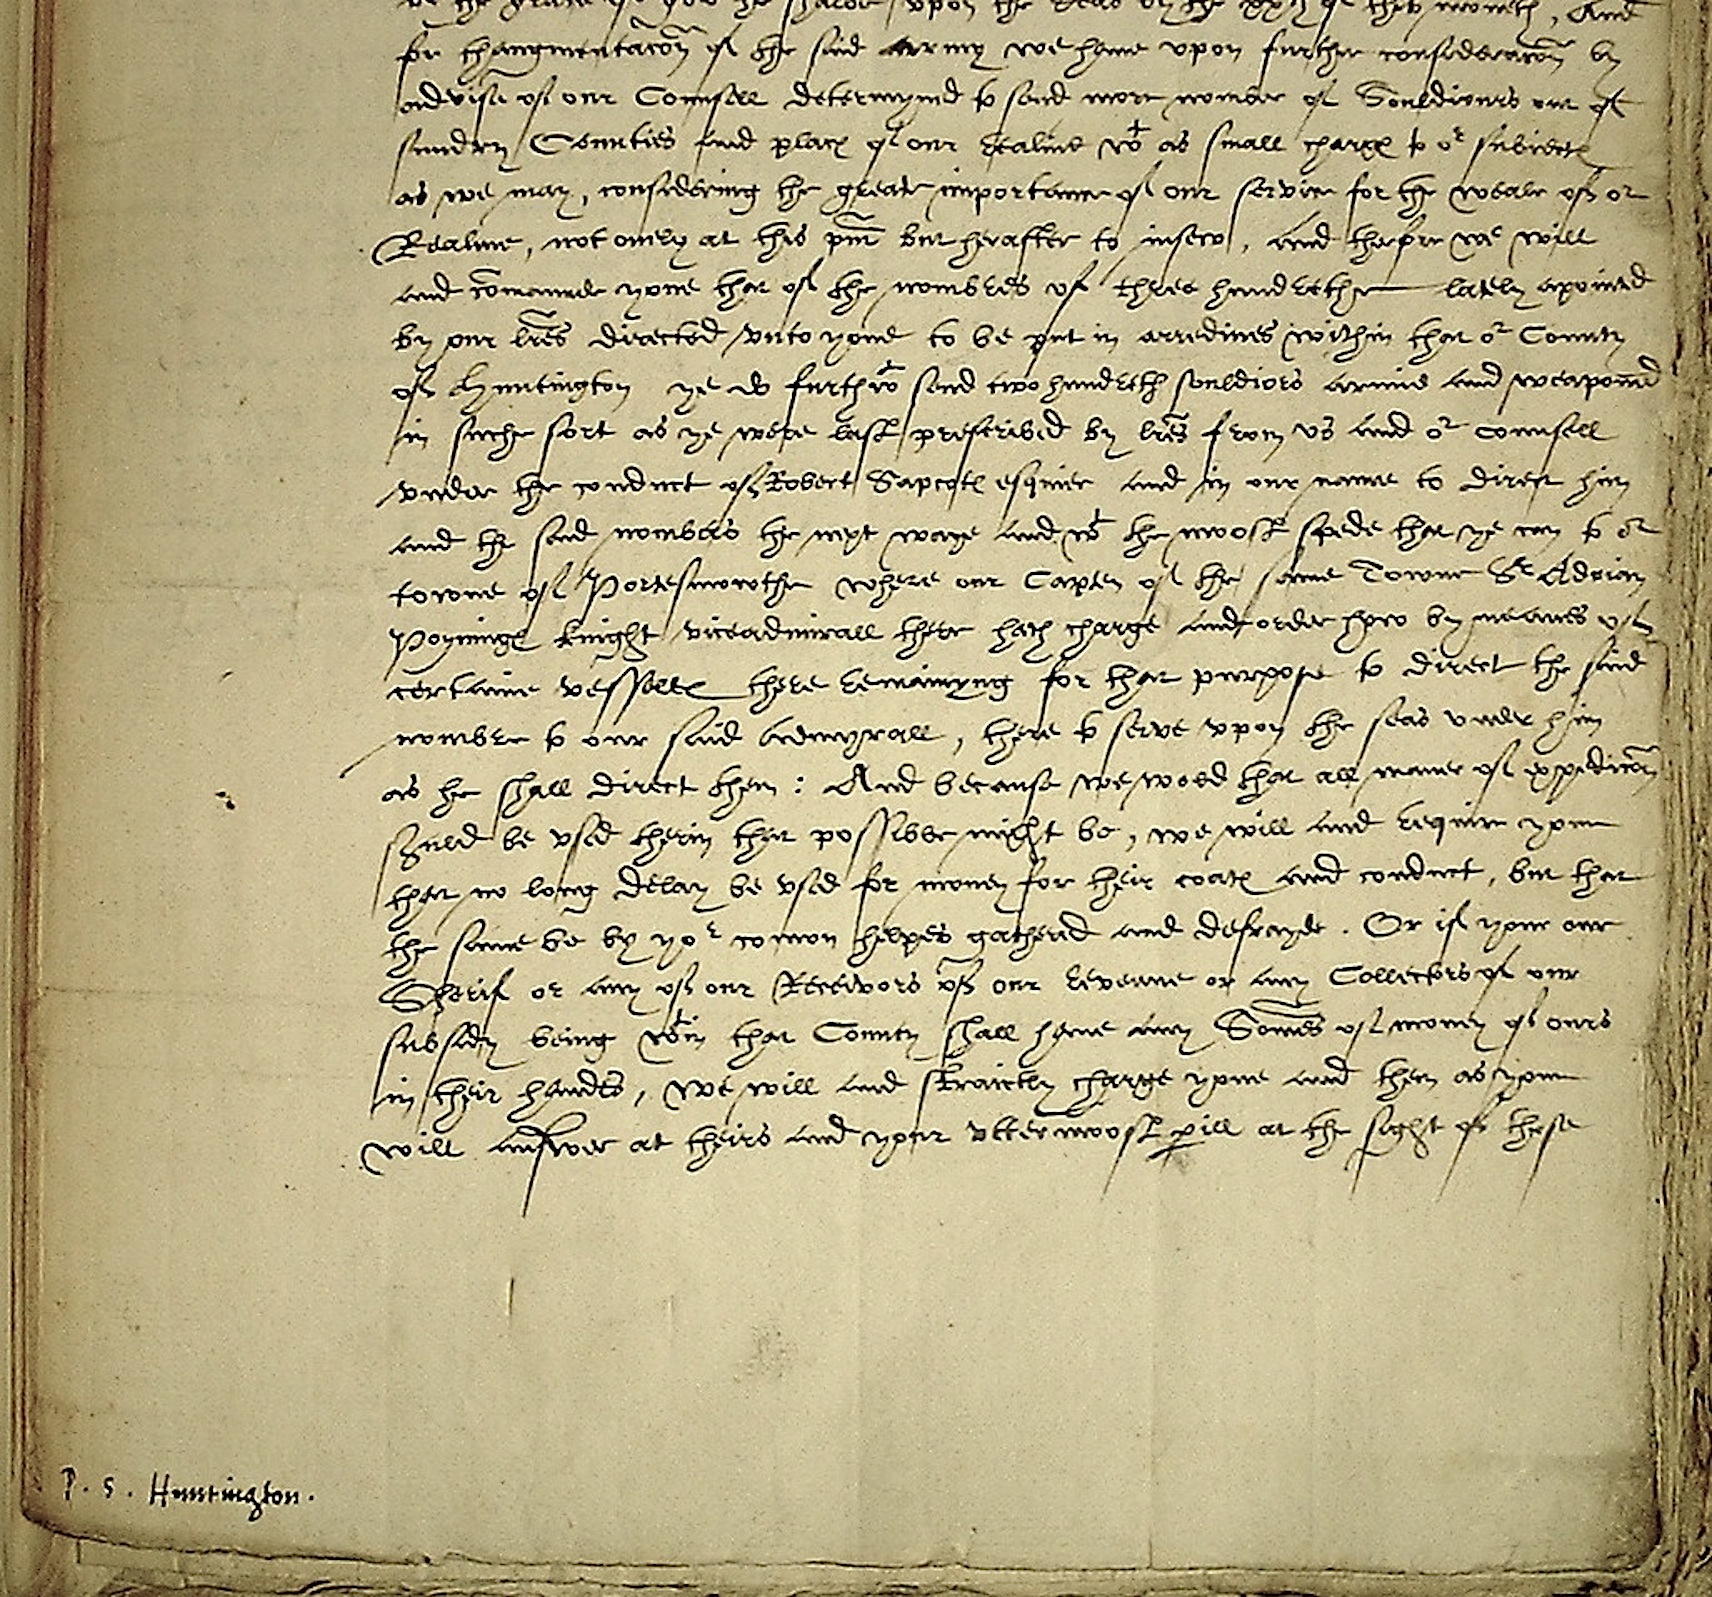 be the grace of god he shalbe upon the seas by the xxth of this moneth, And
for thaugmentacon of the said Army we haue vpon further consideracon by
advise of our Counsell determynid to send more nomber of Souldiours out of
sundry Counties and places of our Realme wt as small charges to or subiectes
as we may, considering the great importance of our service for the weale of or
Realme, not onely at this pnt but herafter to insew, And therfore we will
and comaunde youe that of the nombres of three hundrethe lately apointed
by our lres directed vnto youe to be put in arredines within that or County
of Huntington ye do furthwt send two hundreth souldiors armid and weaponned
in suche sort as ye were last prescribed by lres from vs and or counsell
vnder the conduct of Robert Sapcotes esquier and in our name to direct him
and the said nombers the next waye and wt the most spede that ye can to or
towne of Portesmowthe where our Capten of the same Towne Sr Adrian
Poyninges knight viceadmirall there hath charge and order how by meanes of
certaine vesselles there remaimyng for that purpose to direct the said
nomber to our said Admyrall, there to serve vpon the seas vnder him
as he shall direct them : And because we wold that all maner of expedicon
shuld be vsed therin that possible might be, we will and require youe
that no long delay be vsed for money for their coates and conduct, but that
the same be by yor comon helpes gathered and defrayde. Or if youe our
Sherif or any of our Receivors of our revenue or any Collectors of our
subsedy being wtin that County shall haue any Somes of money of ours
in their handes, we will and straictly charge youe and them as youe
will answer at theirs and your vttermost pill at the sight of these
P. S. Huntington.